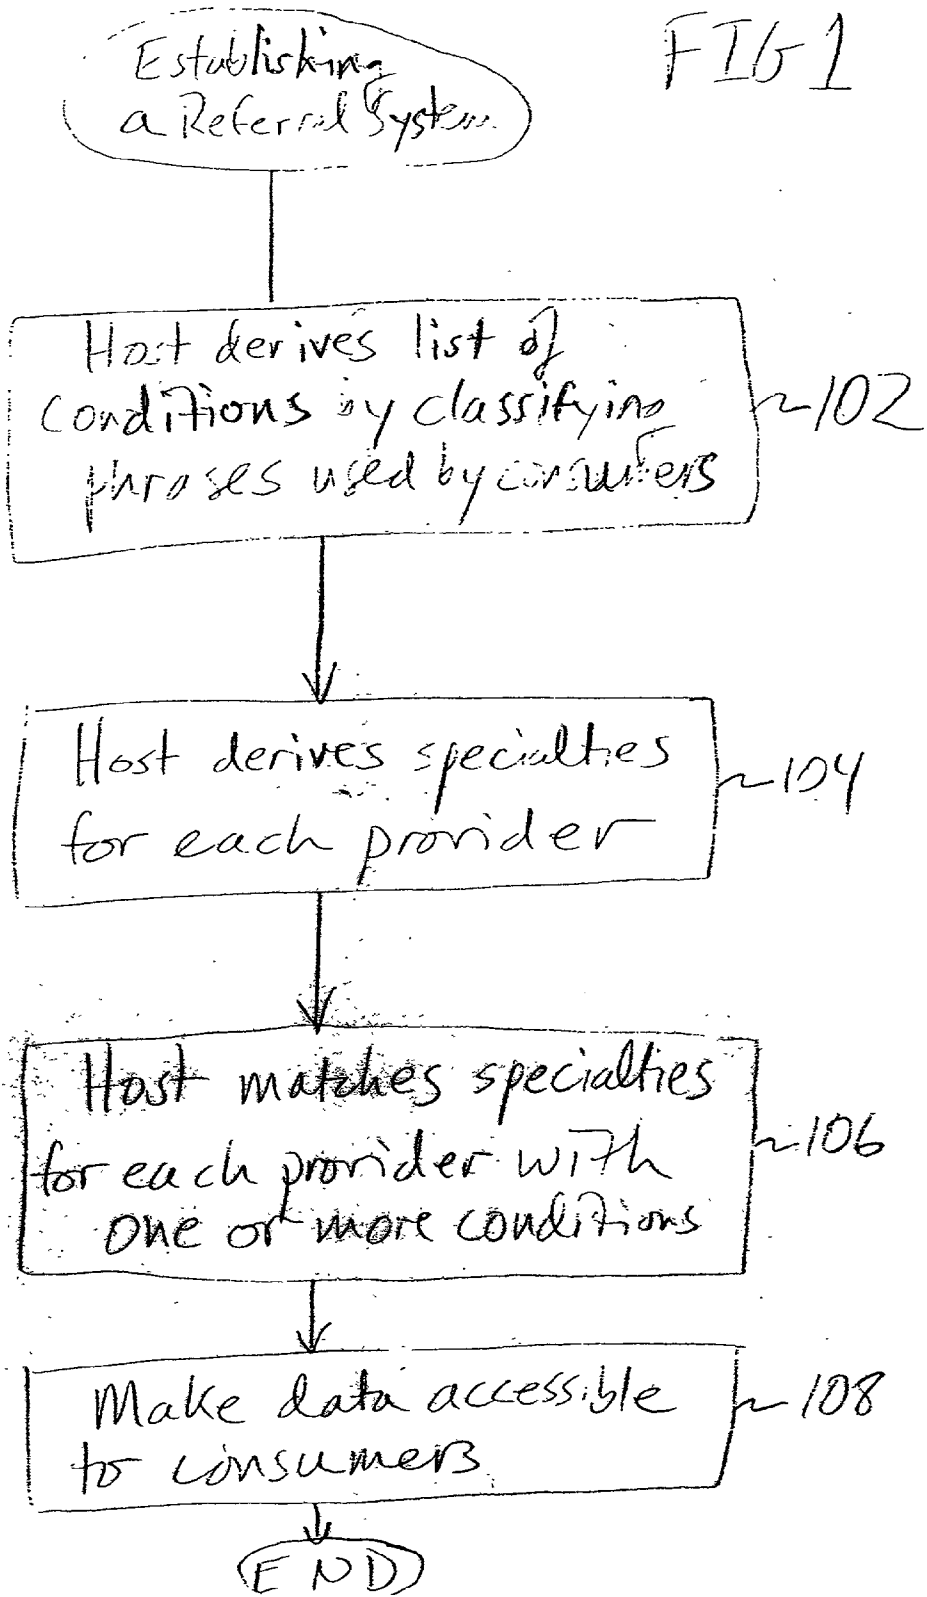 FIG 1
Establishing
a Referral System
Host derives list of
conditions by classifying
phrases used by consumers
102
Host derives specialties
for each provider
104
Host matches specialties
for each provider with
one or more conditions
106
Make data accessible
to consumers
108
END